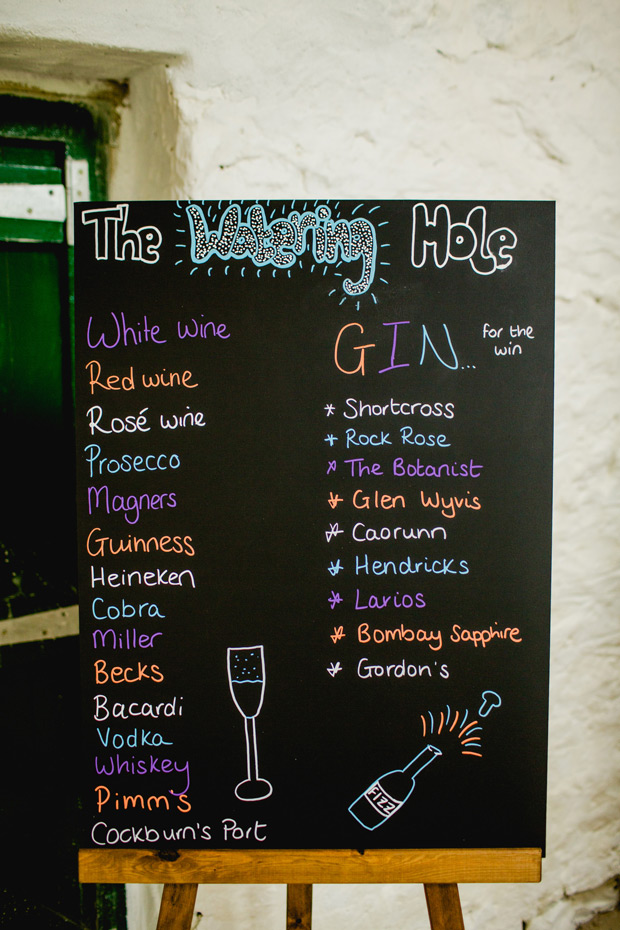 The Watering Hole
White wine
Red wine
Rosé wine
Prosecco
Magners
Guinness
Heineken
Cobra
Miller
Becks
Bacardi
Vodka
Whiskey
Pimm's
Cockburn's Port
GIN... for the win
* Shortcross
* Rock Rose
* The Botanist
* Glen Wyvis
* Caorunn
* Hendricks
* Larios
* Bombay Sapphire
* Gordon's
FIZZ